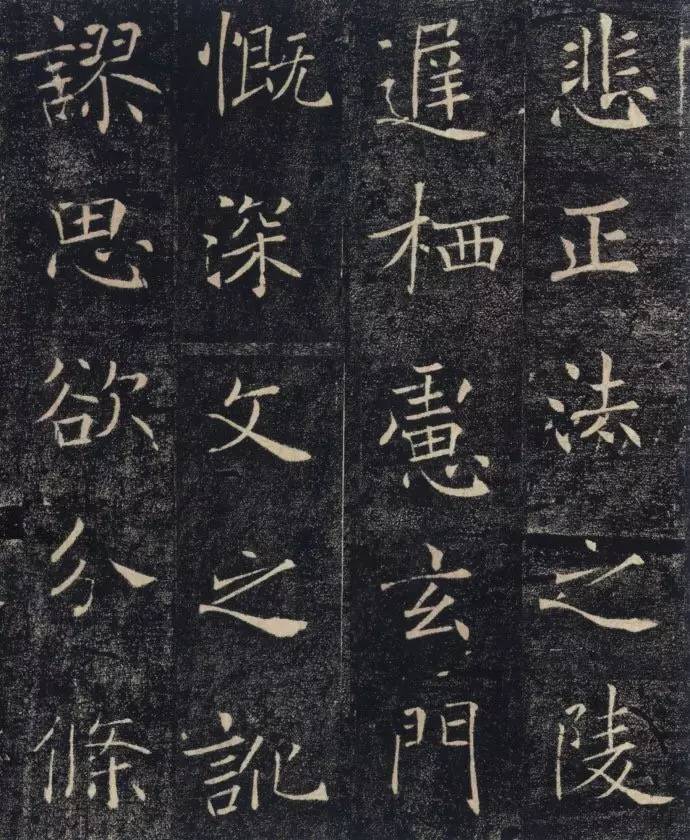 悲正法之陵
遲栖慮玄門
慨深文之訛
謬思欲分條